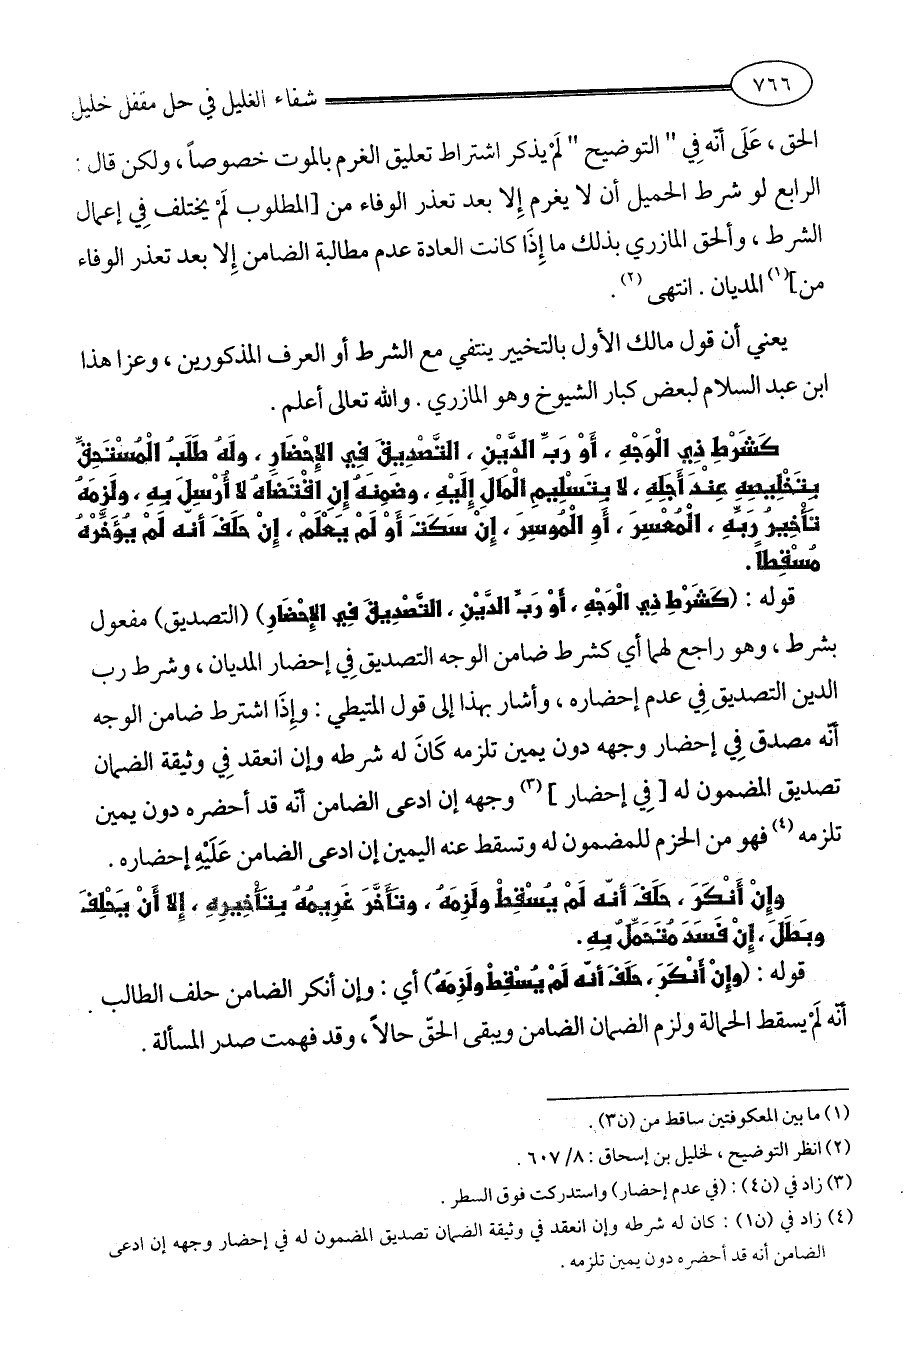 ٧٦٦
شفاء الغليل في حل مقفل خليل
الحق ، عَلَى أنّه فِي " التوضيح " لَمْ يذكر اشتراط تعليق الغرم بالموت خصوصاً ، ولكن قال :
الرابع لو شرط الحميل أن لا يغرم إلا بعد تعذر الوفاء من [المطلوب لَمْ يختلف فِي إعمال
الشرط ، وألحق المازري بذلك ما إِذَا كانت العادة عدم مطالبة الضامن إِلا بعد تعذر الوفاء
من](١) المديان . انتهى (٢) .
يعني أن قول مالك الأول بالتخيير ينتفي مع الشرط أو العرف المذكورين ، وعزا هذا
ابن عبد السلام لبعض كبار الشيوخ وهو المازري . والله تعالى أعلم .
كَشَرْطِ ذِي الْوَجْهِ ، أَوْ رَبِّ الدَّيْنِ ، التَّصْدِيقَ فِي الإِحْضَارِ ، ولَهُ طَلَبُ الْمُسْتَحِقِّ
بِتَخْلِيصِهِ عِنْدَ أَجَلِهِ ، لا بِتَسْلِيمِ الْمَالِ إِلَيْهِ ، وضَمِنَهُ إِنِ اقْتَضَاهُ لا أُرْسِلَ بِهِ ، ولَزِمَهُ
تَأْخِيرُ رَبِّهِ ، الْمُعْسِرَ ، أَوِ الْمُوسِرَ ، إِنْ سَكَتَ أَوْ لَمْ يَعْلَمْ ، إِنْ حَلَفَ أَنَّه لَمْ يُؤَخِّرْهُ
مُسْقِطاً .
قوله : (كَشَرْطِ ذِي الْوَجْهِ ، أَوْ رَبِّ الدَّيْنِ ، التَّصْدِيقَ فِي الإِحْضَارِ) (التصديق) مفعول
بشرط ، وهو راجع لهما أي كشرط ضامن الوجه التصديق فِي إحضار المديان ، وشرط رب
الدين التصديق فِي عدم إحضاره ، وأشار بهذا إلى قول المتيطي : وإِذَا اشترط ضامن الوجه
أنّه مصدق فِي إحضار وجهه دون يمين تلزمه كَانَ له شرطه وإن انعقد فِي وثيقة الضمان
تصديق المضمون له [ فِي إحضار ] (٣) وجهه إن ادعى الضامن أنّه قد أحضره دون يمين
تلزمه (٤) فهو من الحزم للمضمون له وتسقط عنه اليمين إن ادعى الضامن عَلَيْهِ إحضاره .
وإِنْ أَنْكَرَ ، حَلَفَ أنّه لَمْ يُسْقِطْ ولَزِمَهُ ، وتَأَخَّرَ غَرِيمُهُ بِتَأْخِيرِهِ ، إِلا أَنْ يَحْلِفَ
وبَطَلَ ، إِنْ فَسَدَ مُتَحَمَّلٌ بِهِ .
قوله : (وإِنْ أَنْكَرَ ، حَلَفَ أنّه لَمْ يُسْقِطْ ولَزِمَهُ) أي : وإن أنكر الضامن حلف الطالب .
أنّه لَمْ يسقط الحمالة ولزم الضمان الضامن ويبقى الحقّ حالاً ، وقد فهمت صدر المسألة .
(١) ما بين المعكوفتين ساقط من (ن٣) .
(٢) انظر التوضيح ، لخليل بن إسحاق : ٨/ ٦٠٧ .
(٣) زاد في (ن٤) : (في عدم إحضار) واستدركت فوق السطر .
(٤) زاد في (ن١) : كان له شرطه وإن انعقد في وثيقة الضمان تصديق المضمون له في إحضار وجهه إن ادعى
الضامن أنه قد أحضره دون يمين تلزمه .